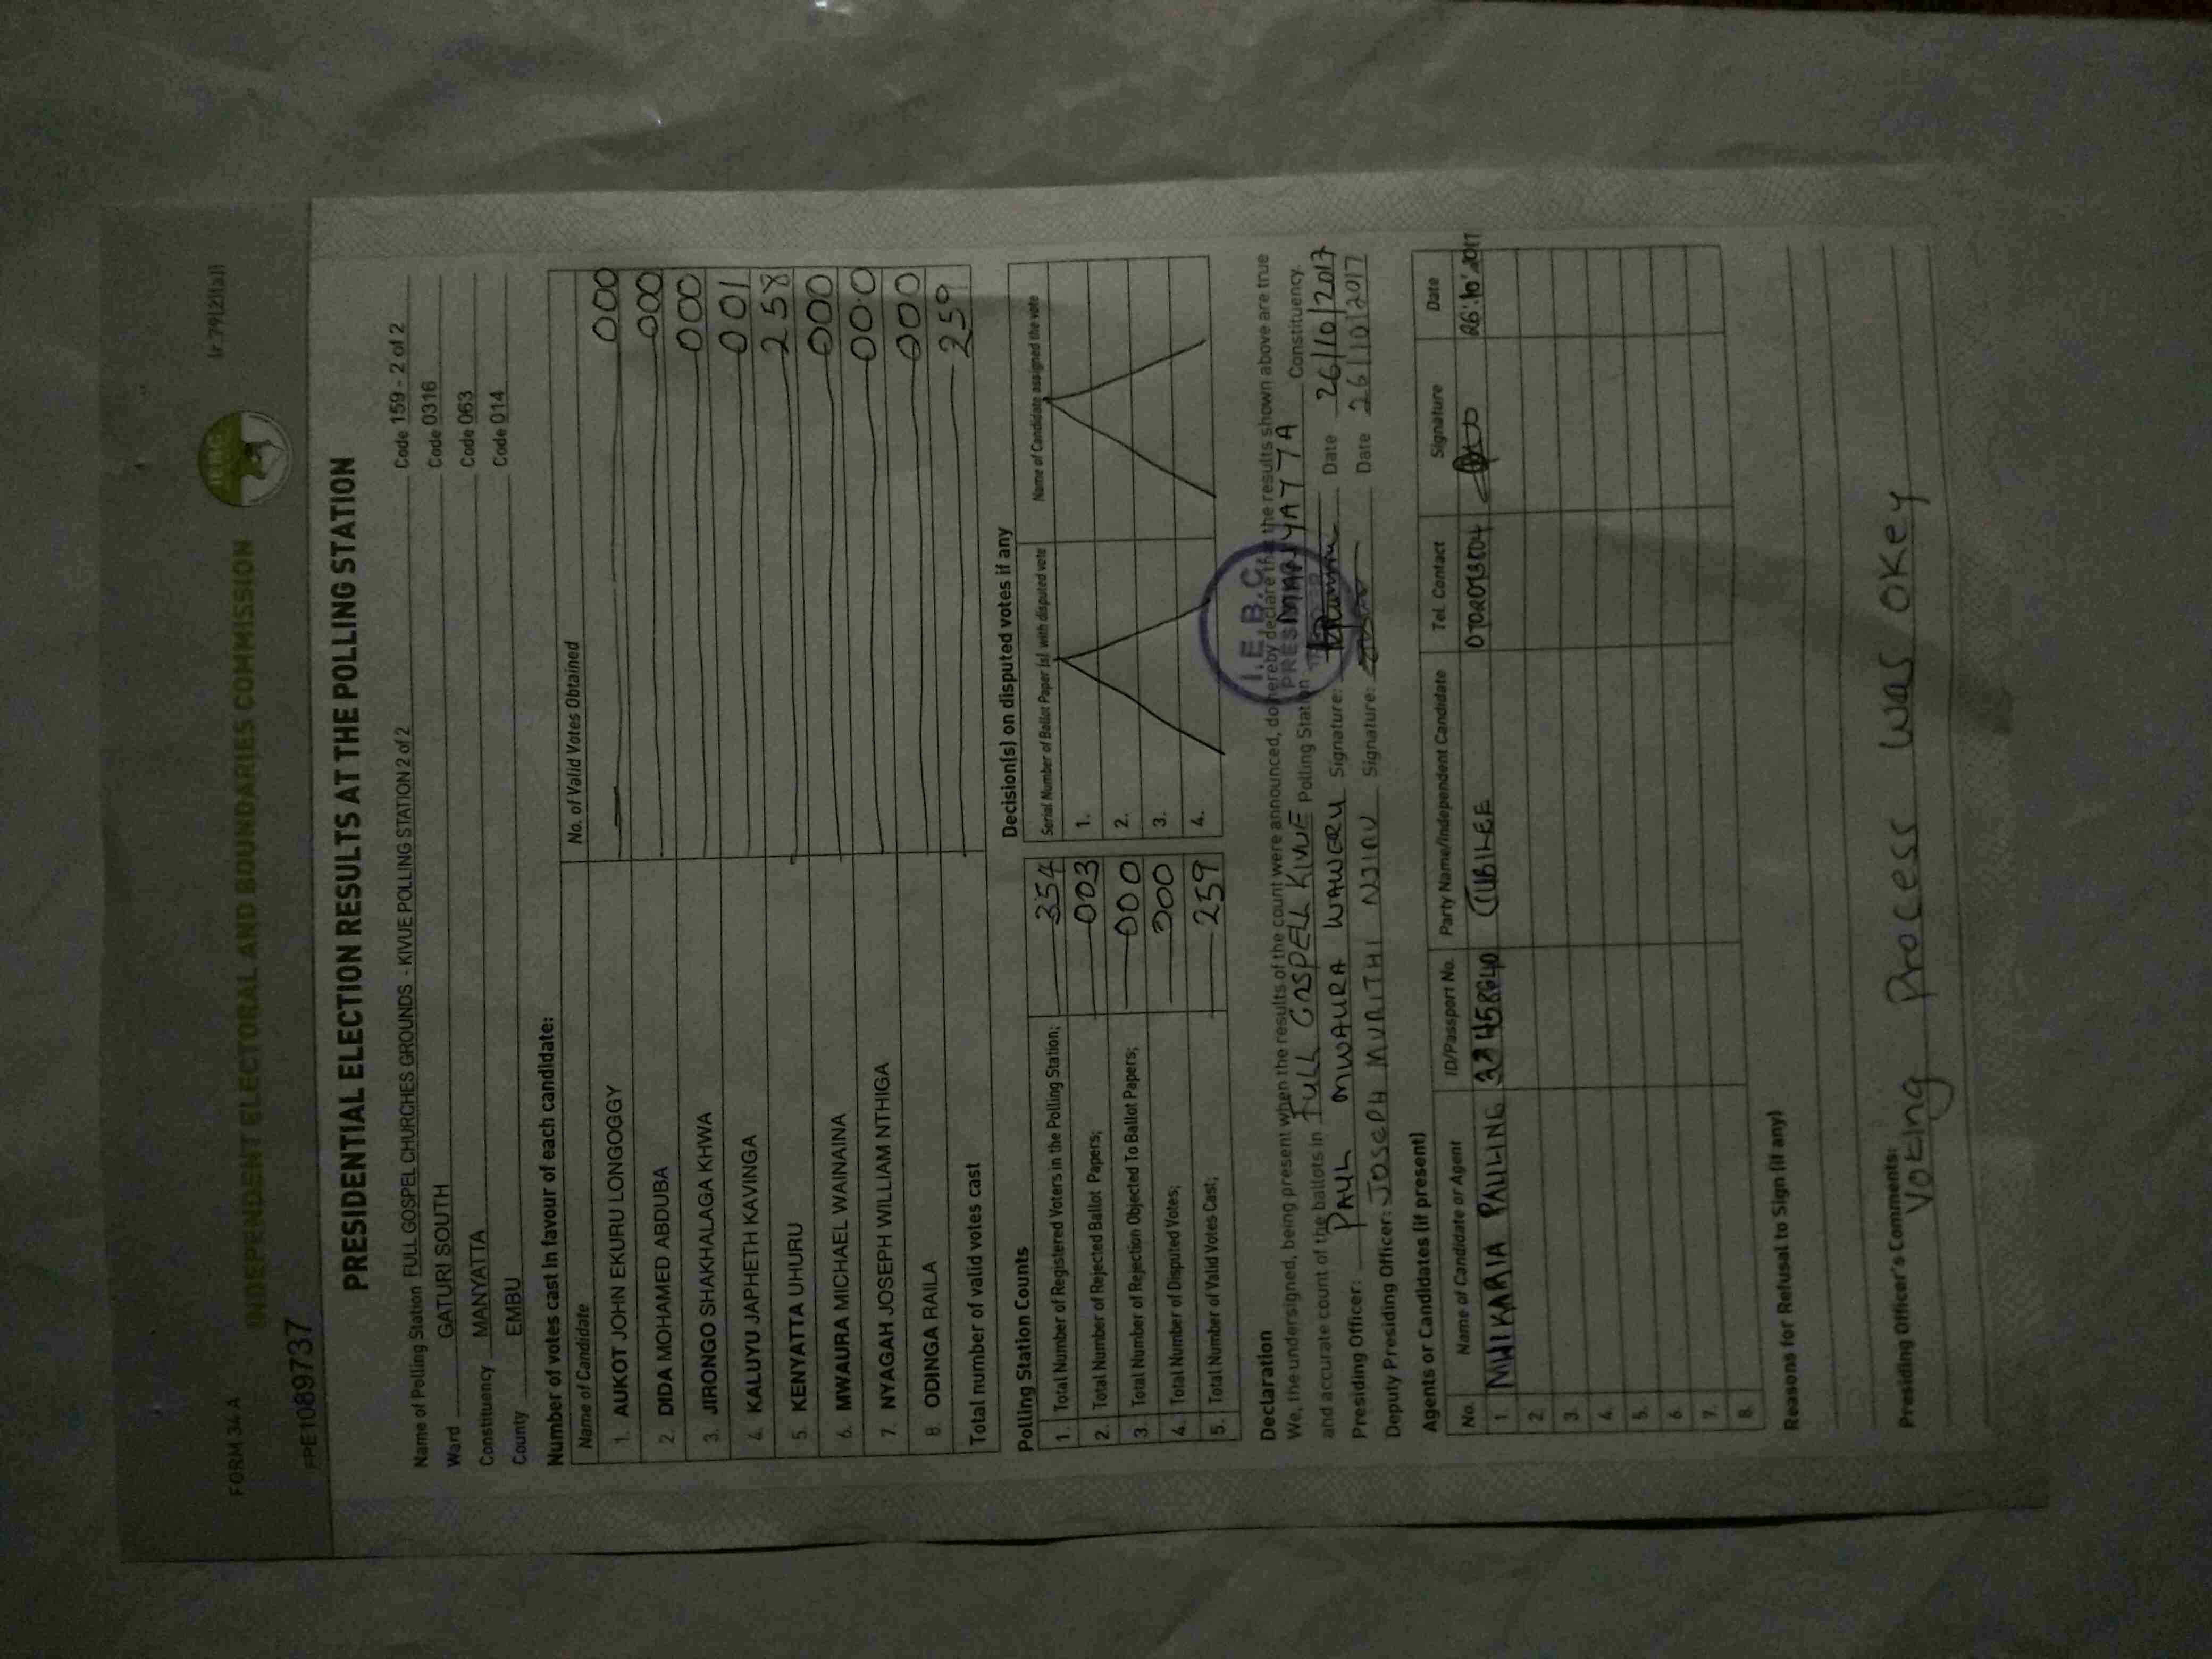 FORM 34 A
(r 79(2)(a))
IEBC
INDEPENDENT ELECTORAL AND BOUNDARIES COMMISSION
PPE1089737
PRESIDENTIAL ELECTION RESULTS AT THE POLLING STATION
Name of Polling Station FULL GOSPEL CHURCHES GROUNDS - KIVUE POLLING STATION 2 of 2 Code 159 - 2 of 2
Ward GATURI SOUTH Code 0316
Constituency MANYATTA Code 063
County EMBU Code 014
Number of votes cast in favour of each candidate:
Name of Candidate No. of Valid Votes Obtained
1. AUKOT JOHN EKURU LONGOGGY 000
2. DIDA MOHAMED ABDUBA 000
3. JIRONGO SHAKHALAGA KHWA 000
4. KALUYU JAPHETH KAVINGA 001
5. KENYATTA UHURU 258
6. MWAURA MICHAEL WAINAINA 000
7. NYAGAH JOSEPH WILLIAM NTHIGA 000
8. ODINGA RAILA 000
Total number of valid votes cast 259
Polling Station Counts
1. Total Number of Registered Voters in the Polling Station; 354
2. Total Number of Rejected Ballot Papers; 003
3. Total Number of Rejection Objected To Ballot Papers; 000
4. Total Number of Disputed Votes; 000
5. Total Number of Valid Votes Cast; 259
Decision(s) on disputed votes if any
Serial Number of Ballot Paper (s) with disputed vote Name of Candidate assigned the vote
1.
2.
3.
4.
Declaration
We, the undersigned, being present when the results of the count were announced, do hereby declare that the results shown above are true
and accurate count of the ballots in FULL GOSPELL KIVUE Polling Station MANYATTA Constituency.
Presiding Officer: PAUL MWAURA WAWERU Signature: Date 26/10/2017
Deputy Presiding Officer: JOSEPH MURITHI NJIRU Signature: Date 26/10/2017
I.E.B.C.
Agents or Candidates (if present)
No. Name of Candidate or Agent ID/Passport No. Party Name/Independent Candidate Tel. Contact Signature Date
1. MWIKARIA PAULINE JUBILEE 26.10.2017
2.
3.
4.
5.
6.
7.
8.
Reasons for Refusal to Sign (if any)
Presiding Officer's Comments:
Voting Process was okey